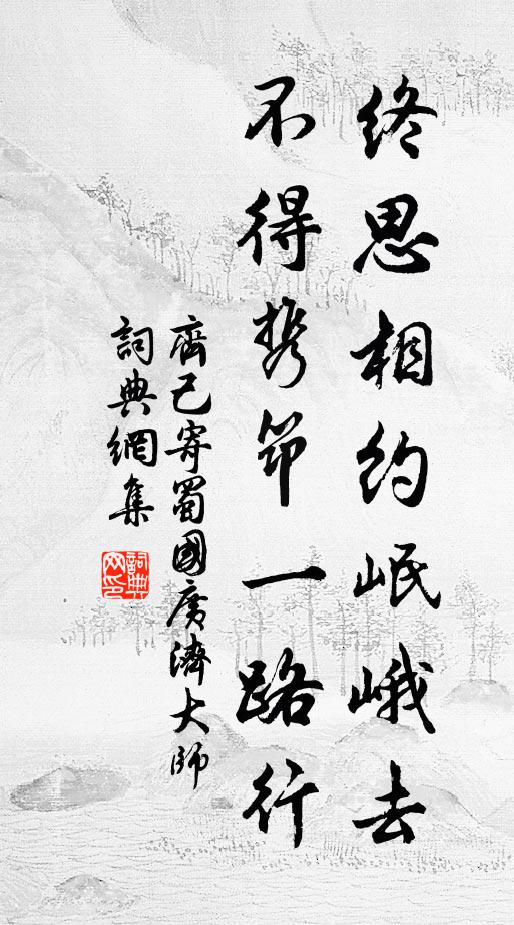 终思相约岷峨去
不得携筇一路行
齊己寄蜀國廣濟大师
詞典網集
詞典网印